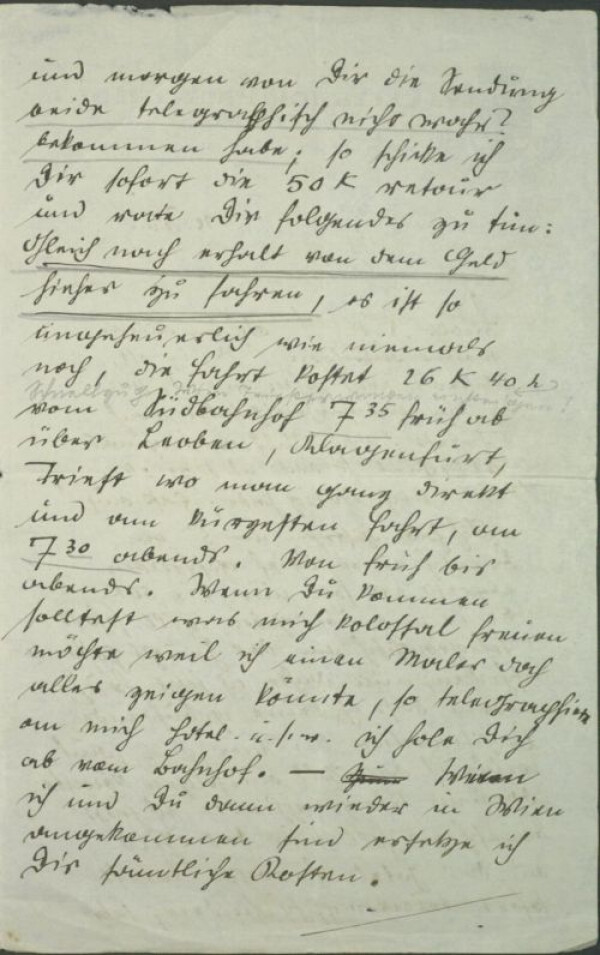 und morgen von Dir die Sendung
beide telegraphisch nicht wahr?
bekommen habe; so schicke ich
Dir sofort die 50 K retour
und rate Dir folgendes zu tun:
Gleich nach erhalt von dem Geld
hieher zu fahren, es ist so
ungeheuerlich wie niemals
noch, die Fahrt kostet 26 K 40 h
Schnellzug
vom Südbahnhof 7 35 früh ab
über Leoben, Klagenfurt,
Triest wo man ganz direkt
und am kürzesten fährt, am
7 30 abends. Von früh bis
abends. Wenn Du kommen
solltest was mich kolossal freuen
möchte weil ich einen Maler doch
alles zeigen könnte, so telegraphiere
an mich Hotel u.s.w. ich hole Dich
ab vom Bahnhof. — Wenn
ich und Du dann wieder in Wien
angekommen sind ersetze ich
Dir sämtliche Kosten.